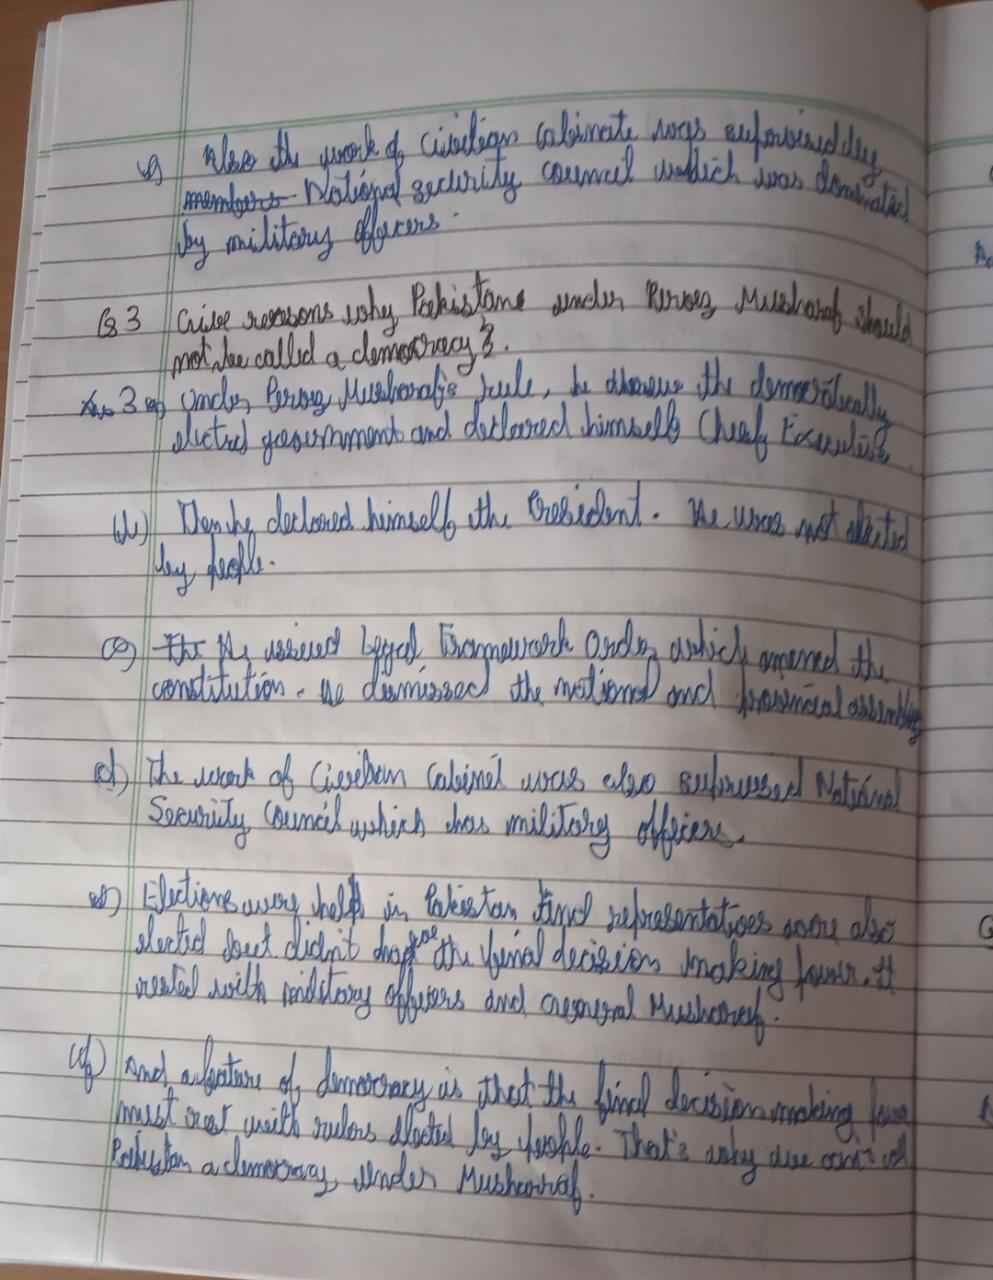 g) Also the work of civilian cabinate was supervised by
members National security council which was dominated
by military officers.
Q3 Give reasons why Pakistan under Pervez Musharaf should
not be called a democracy?
Ans 3 a) Under Pervez Musharaf's rule, he the democratically
elected government and declared himself Cheaf Executive
(b) Then he declared himself the President. He was not elected
by people.
(c) The He issued Legal Framework Order which amened the
constitution. He dismissed the national and provincial assembly
d) The work of Civilian Cabinet was also supervised National
Security Council which has military officers.
e) Elections were held in Pakistan and representatives were also
elected but didn't have the final decision making power. It
rested with military officers and General Musharraf.
(f) And a feature of democracy is that the final decision making power
must rest with rulers elected by people. That's why we can't call
Pakistan a democracy under Musharraf.